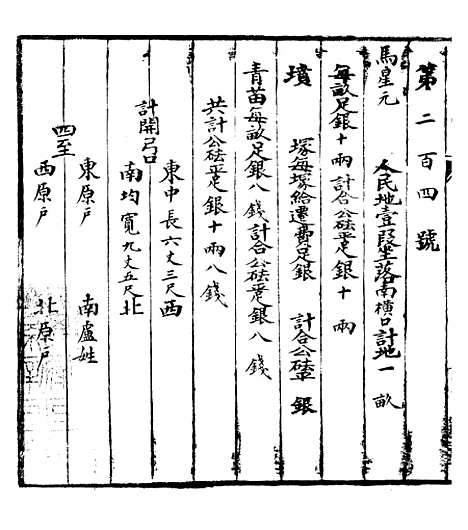 第二百四號
馬星元　人民地壹段坐落南橫口計地一畝
每畝足銀十兩計合公砝平足銀十兩
墳　塚每塚給遷費足銀　計合公砝平　銀
青苗每畝足銀八錢計合公砝平足銀八錢
共計公砝平足銀十兩八錢
東中長六丈三尺西
計開弓口
南均寬九丈五尺北
東原戶　南盧姓
四至
西原戶　北原戶